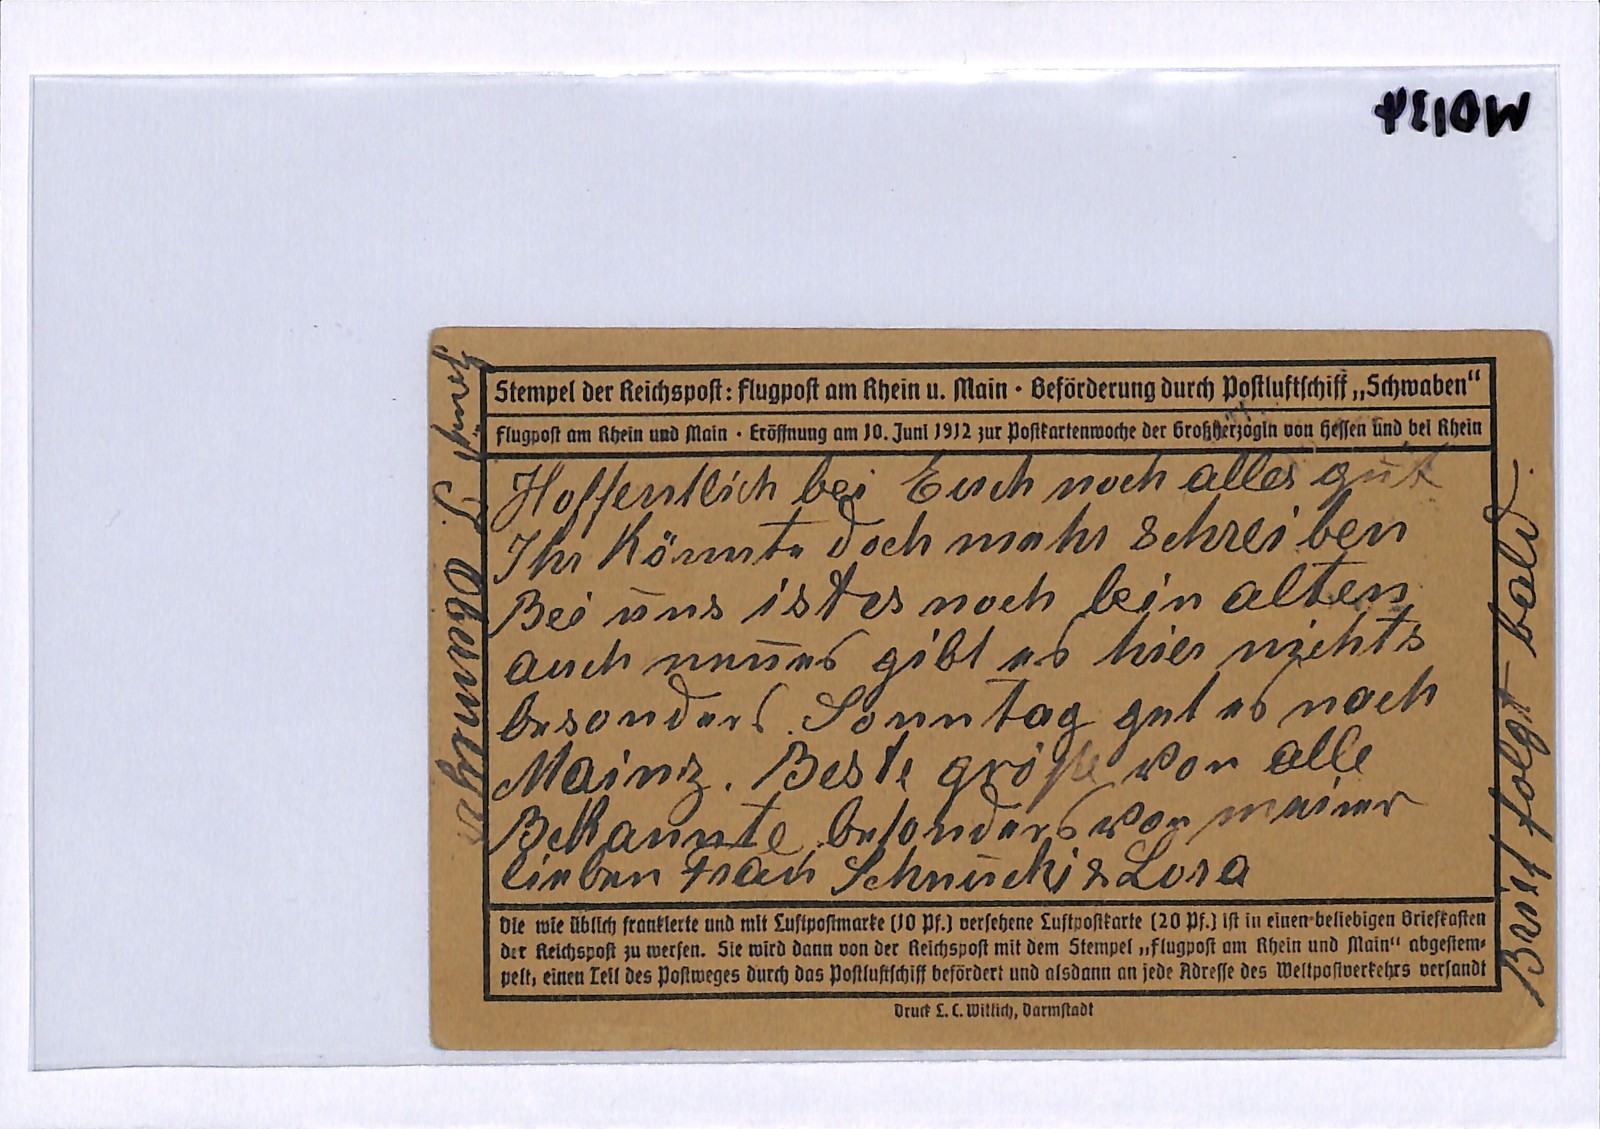 MD134
Stempel der Reichspost: Flugpost am Rhein u. Main · Beförderung durch Postluftschiff „Schwaben“
Flugpost am Rhein und Main · Eröffnung am 10. Juni 1912 zur Postkartenwoche der Großherzogin von Hessen und bei Rhein
Hoffentlich bei Euch noch alles gut
Ihr könnte doch mehr schreiben
Bei uns ist es noch bein alten
auch neues gibt es hier nichts
besonders. Sonntag get es nach
Mainz. Beste grüße von alle
Bekannte besonders von meiner
lieben Frau Schnucki & Lora
Die wie üblich frankierte und mit Luftpostmarke (10 Pf.) versehene Luftpostkarte (20 Pf.) ist in einen beliebigen Briefkasten
der Reichspost zu werfen. Sie wird dann von der Reichspost mit dem Stempel „Flugpost am Rhein und Main“ abgestem-
pelt, einen Teil des Postweges durch das Postluftschiff befördert und alsdann an jede Adresse des Weltpostverkehrs versandt
Druck L. C. Wittich, Darmstadt
Brief folgt bald.